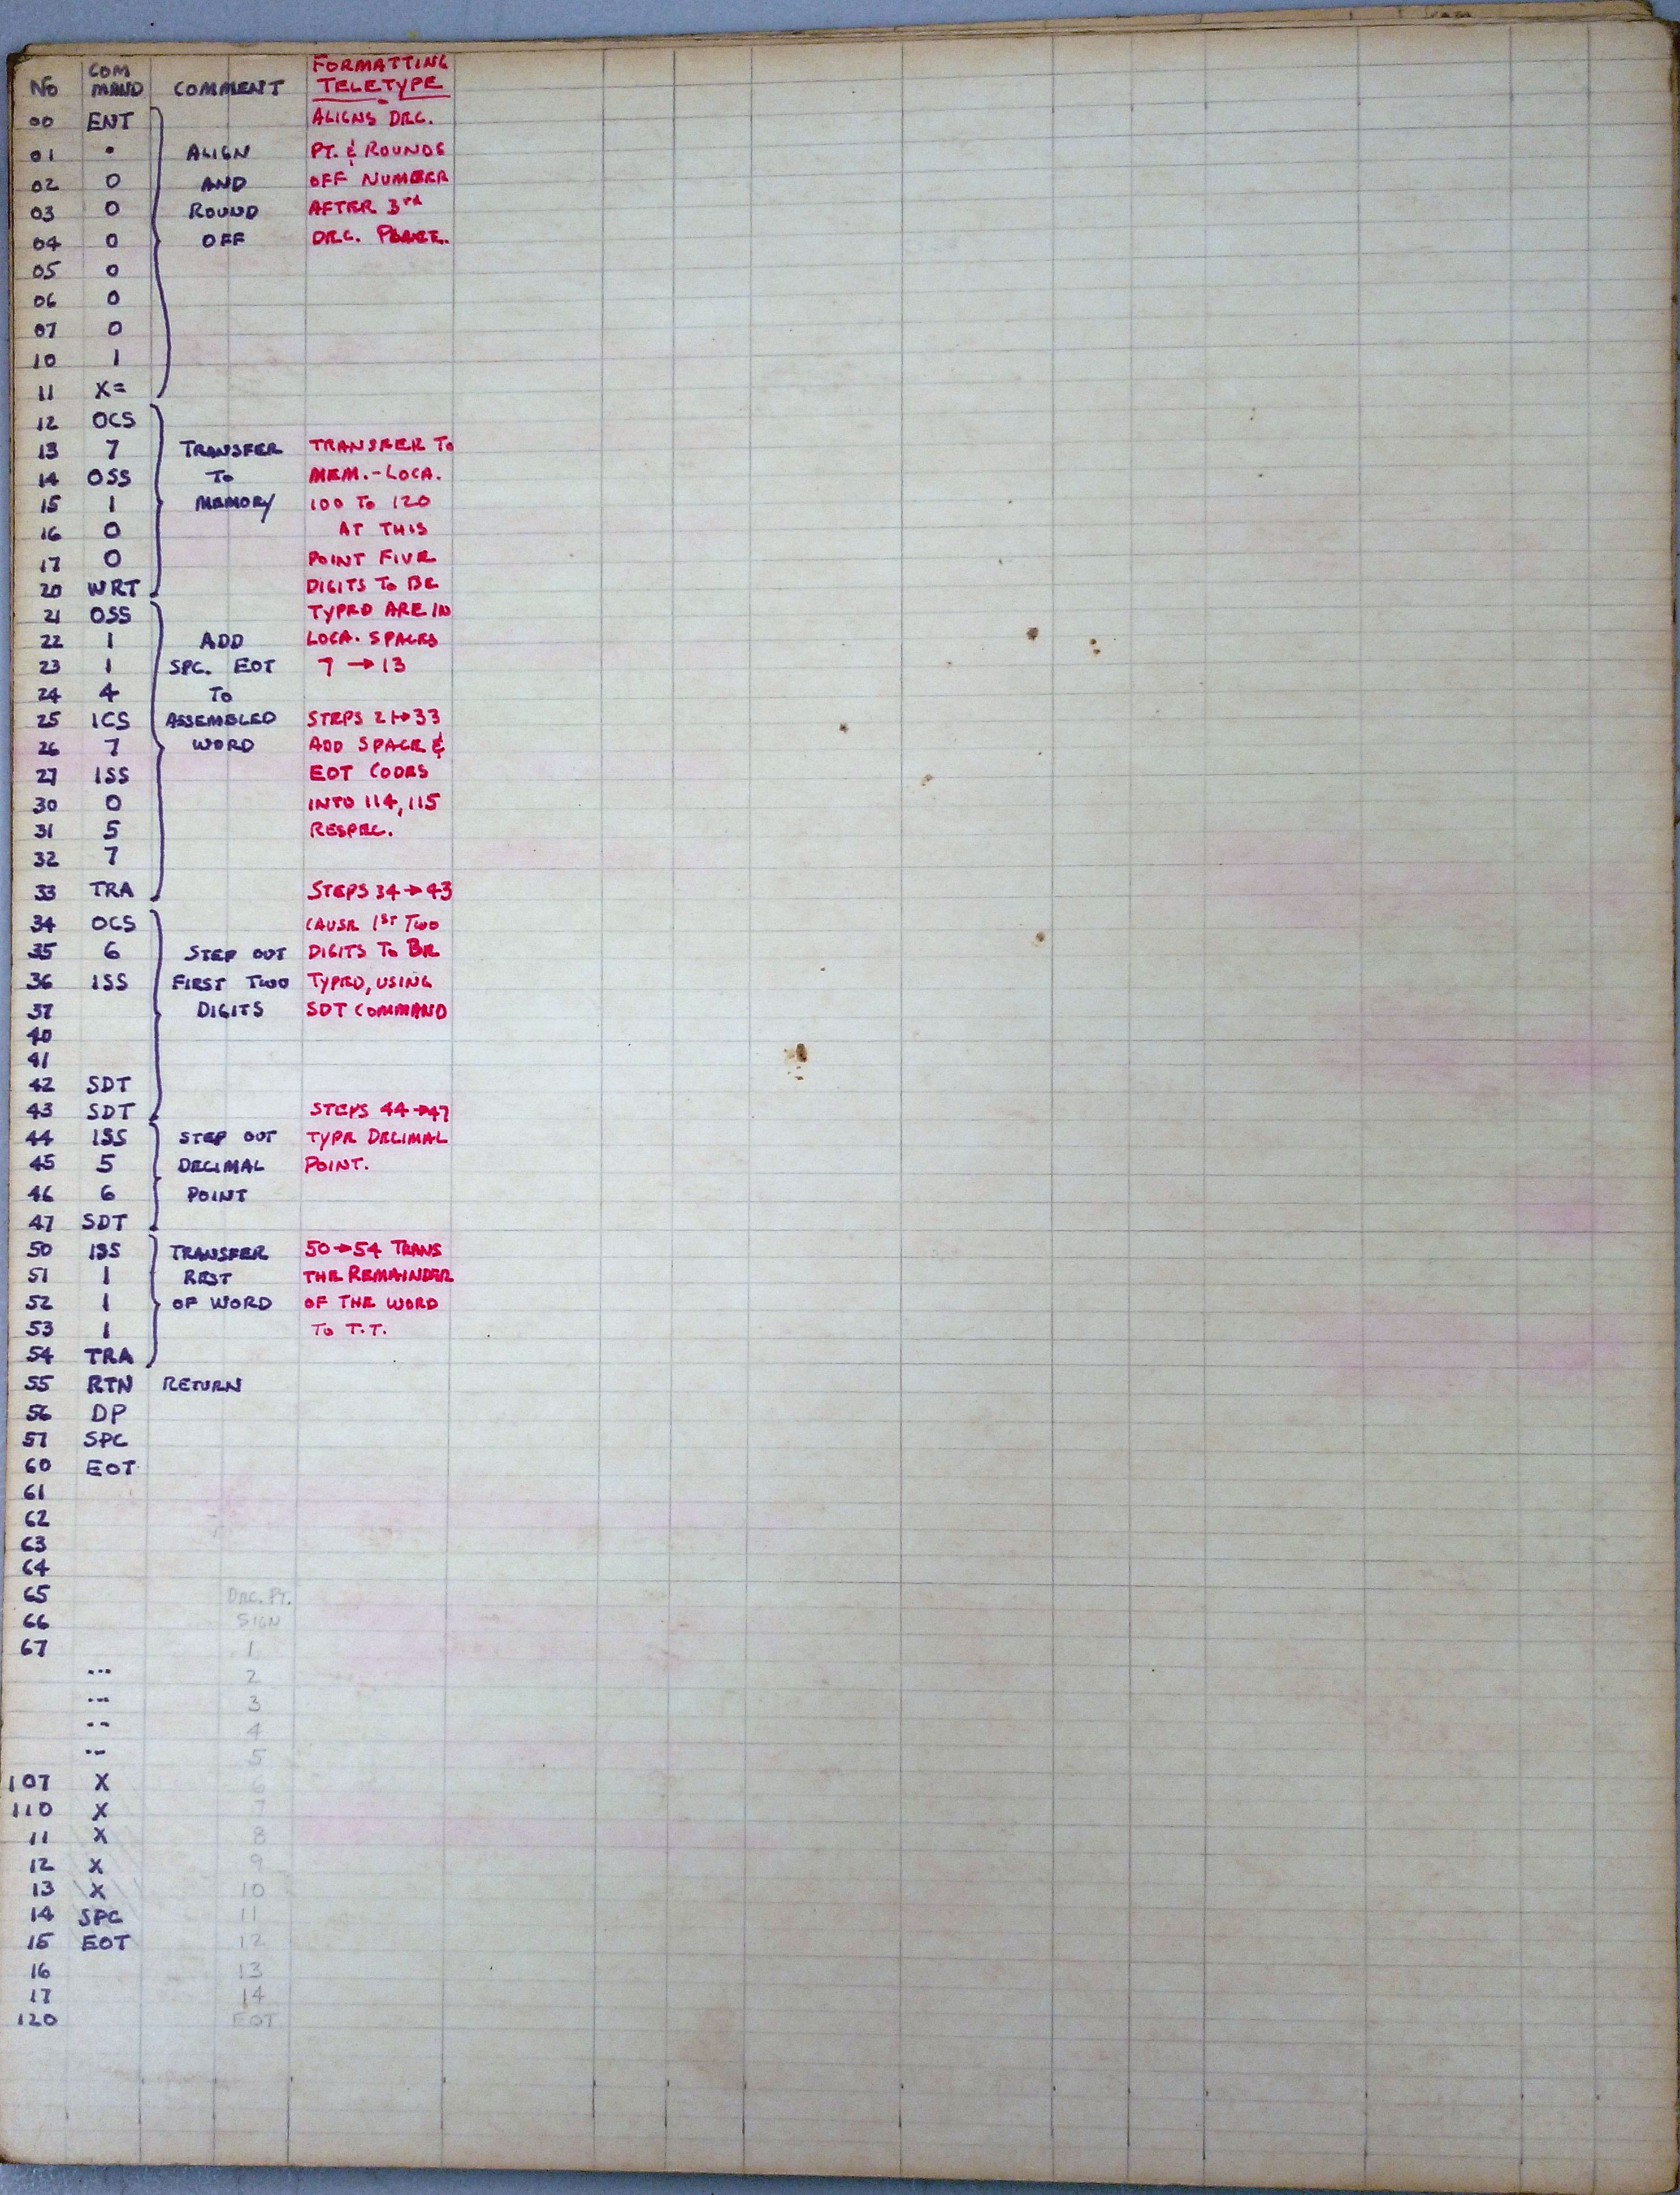 No COM MAND COMMENT FORMATTING TELETYPE
00 ENT ALIGNS DEC.
01 • ALIGN PT. & ROUNDS
02 0 AND OFF NUMBER
03 0 ROUND AFTER 3rd
04 0 OFF DEC. PLACE.
05 0
06 0
07 0
10 1
11 X=
12 OCS
13 7 TRANSFER TRANSFER TO
14 OSS TO MEM.-LOCA.
15 1 MEMORY 100 TO 120
16 0 AT THIS
17 0 POINT FIVE
20 WRT DIGITS TO BE
21 OSS TYPED ARE IN
22 1 ADD LOCA. SPACES
23 1 SPC. EOT 7 → 13
24 4 TO
25 ICS ASSEMBLED STEPS 21→33
26 7 WORD ADD SPACE &
27 ISS EOT CODES
30 0 INTO 114, 115
31 5 RESPEC.
32 7
33 TRA STEPS 34→43
34 OCS CAUSE 1ST TWO
35 6 STEP OUT DIGITS TO BE
36 ISS FIRST TWO TYPED, USING
37 DIGITS SDT COMMAND
40
41
42 SDT
43 SDT STEPS 44→47
44 ISS STEP OUT TYPE DECIMAL
45 5 DECIMAL POINT.
46 6 POINT
47 SDT
50 ISS TRANSFER 50→54 TRANS
51 1 REST THE REMAINDER
52 1 OF WORD OF THE WORD
53 1 TO T.T.
54 TRA
55 RTN RETURN
56 DP
57 SPC
60 EOT
61
62
63
64
65 DEC. PT.
66 SIGN
67 1
... 2
... 3
... 4
... 5
107 X 6
110 X 7
11 X 8
12 X 9
13 X 10
14 SPC 11
15 EOT 12
16 13
17 14
120 EOT